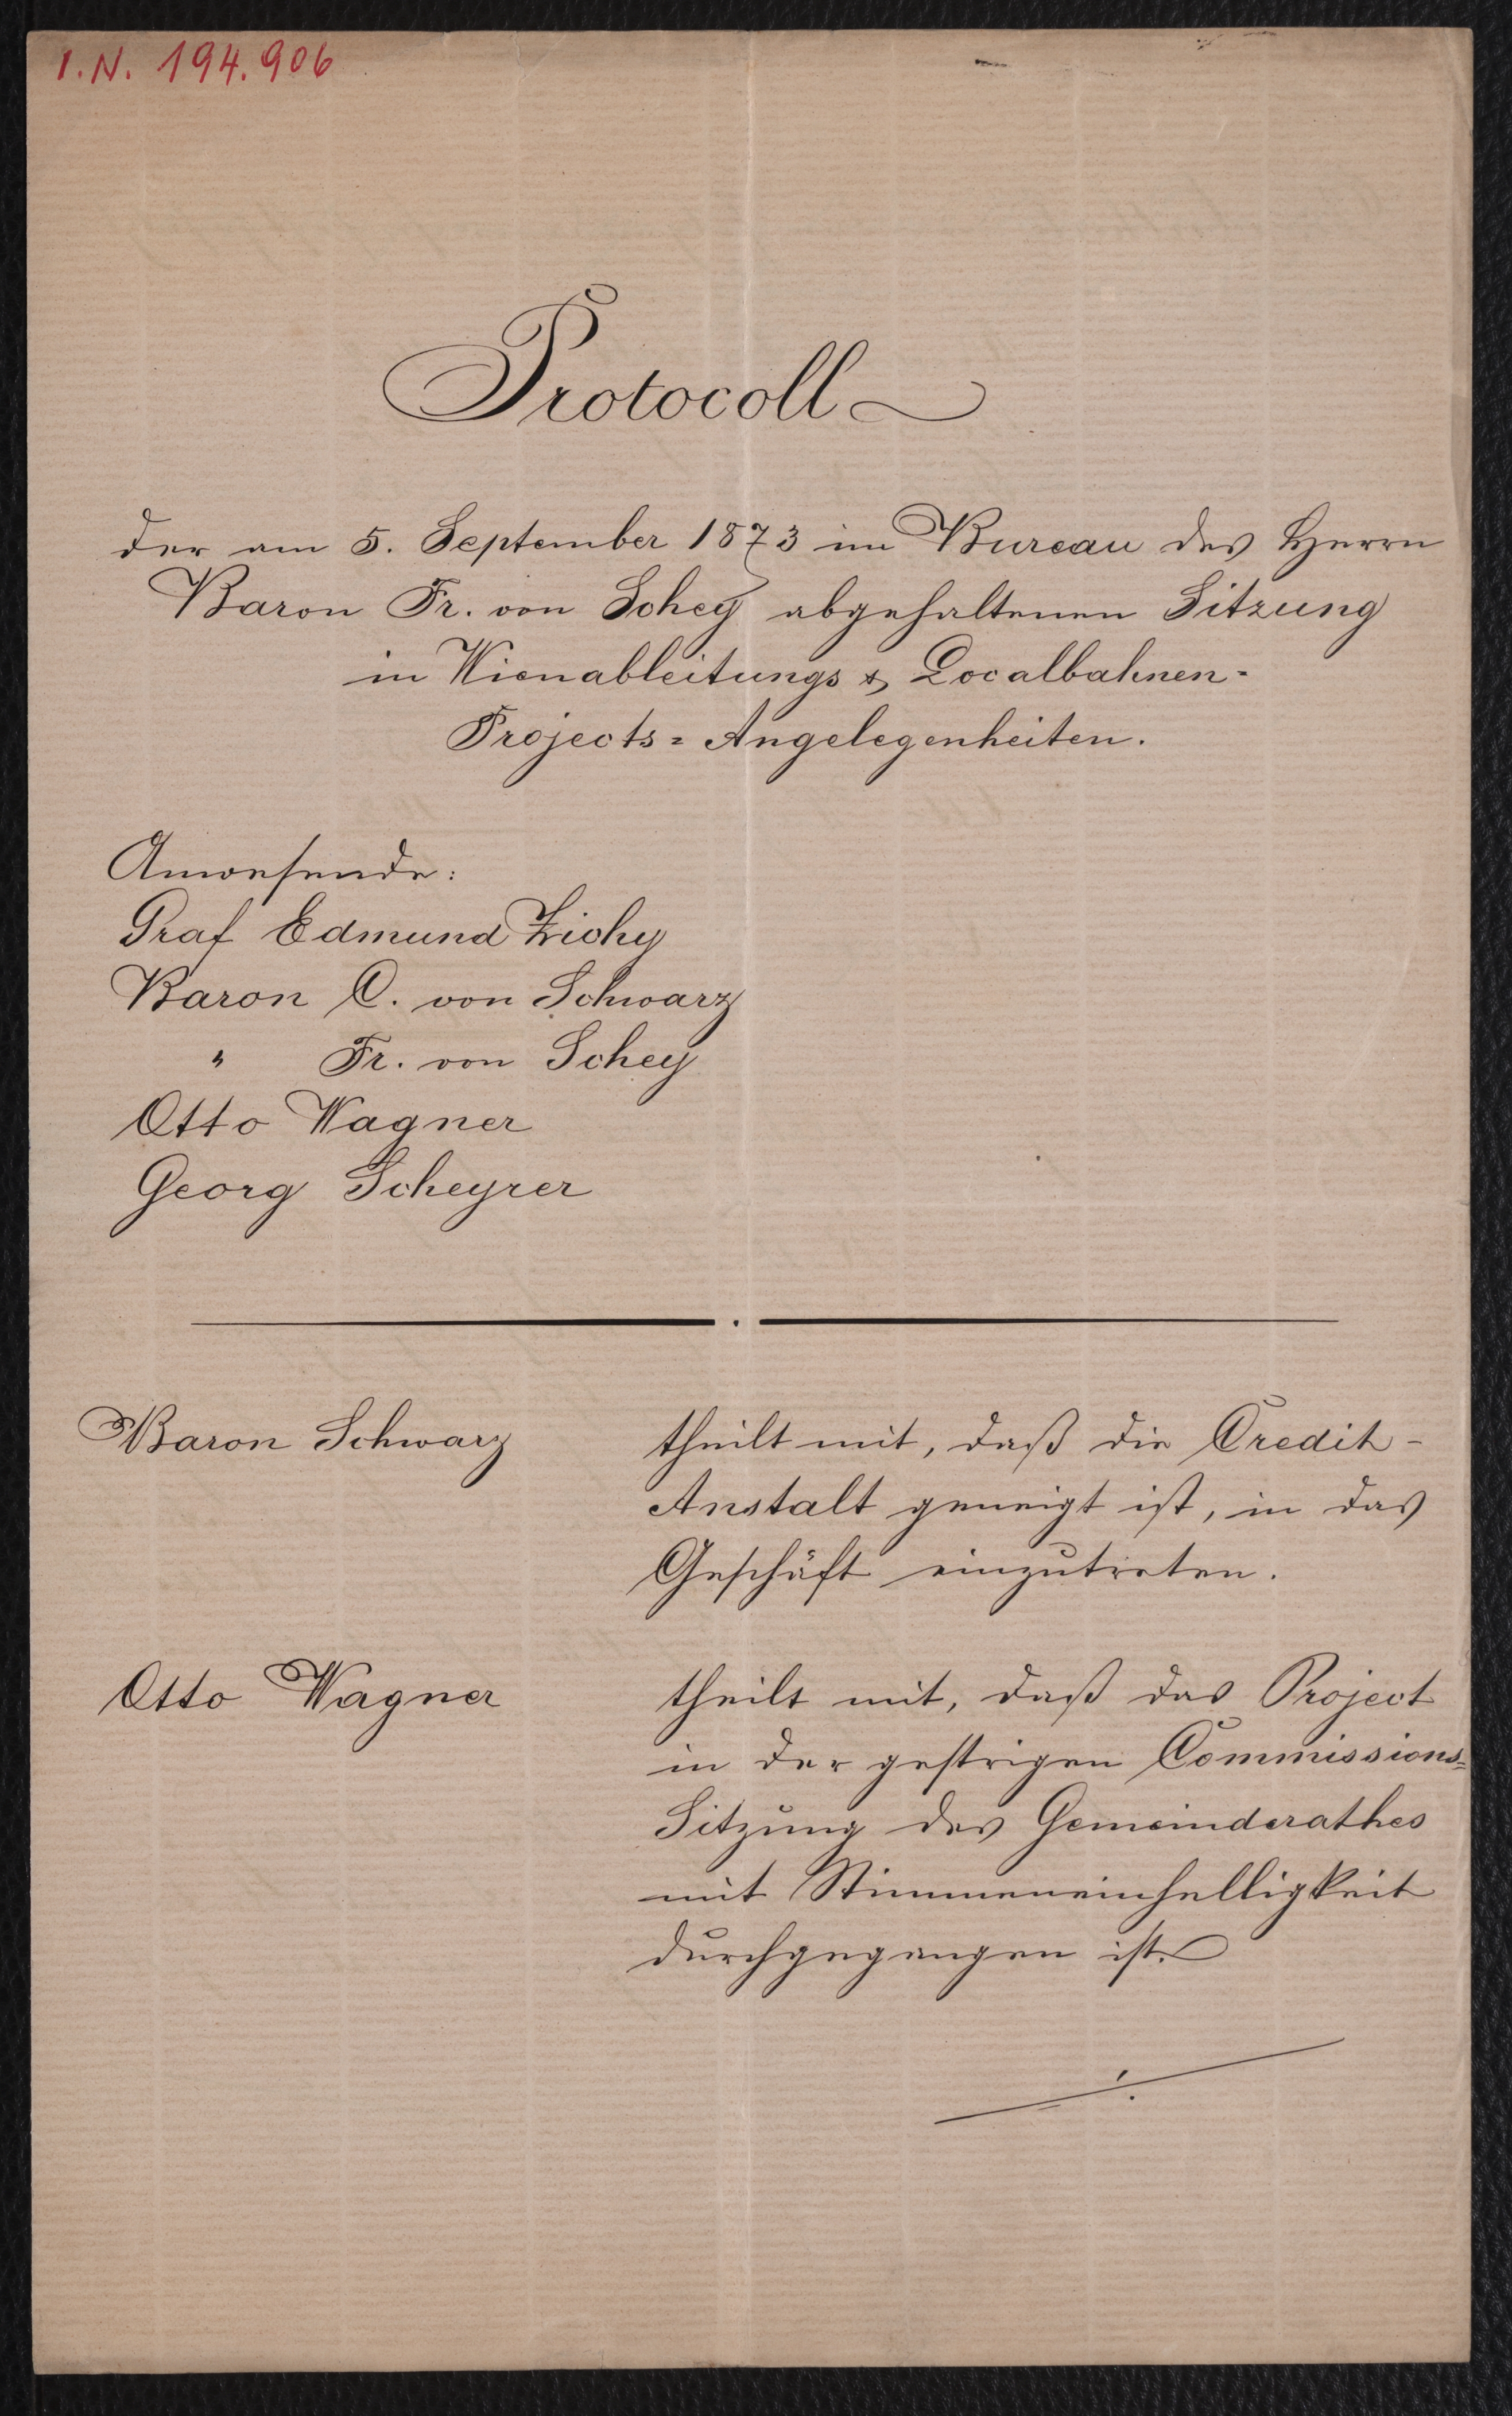 I.N. 194.906
Protocoll
der am 5. September 1873 im Bureau des Herrn
Baron Fr. von Schey abgehaltenen Sitzung
in Wienableitungs & Localbahnen-
Projects= Angelegenheiten.
Anwesende:
Graf Edmund Zichy
Baron C. von Schwarz
" Fr. von Schey
Otto Wagner
Georg Scheyrer
Baron Schwarz theilt mit, daß die Credit-
Anstalt geneigt ist, in das
Geschäft einzutreten.
Otto Wagner theilt mit, daß das Project
in der gestrigen Commissions=
Sitzung des Gemeinderathes
mit Stimmeneinhelligkeit
durchgegangen ist.